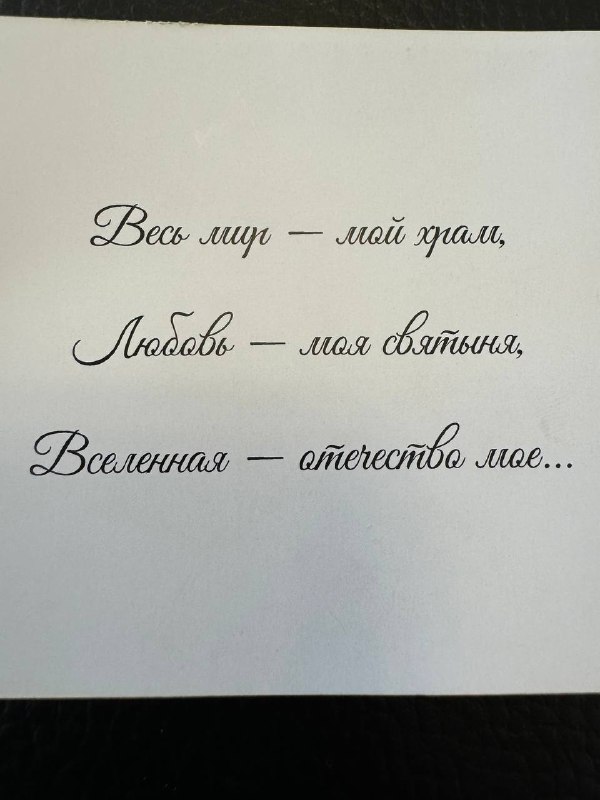 Весь мир — мой храм,
Любовь — моя святыня,
Вселенная — отечество мое...